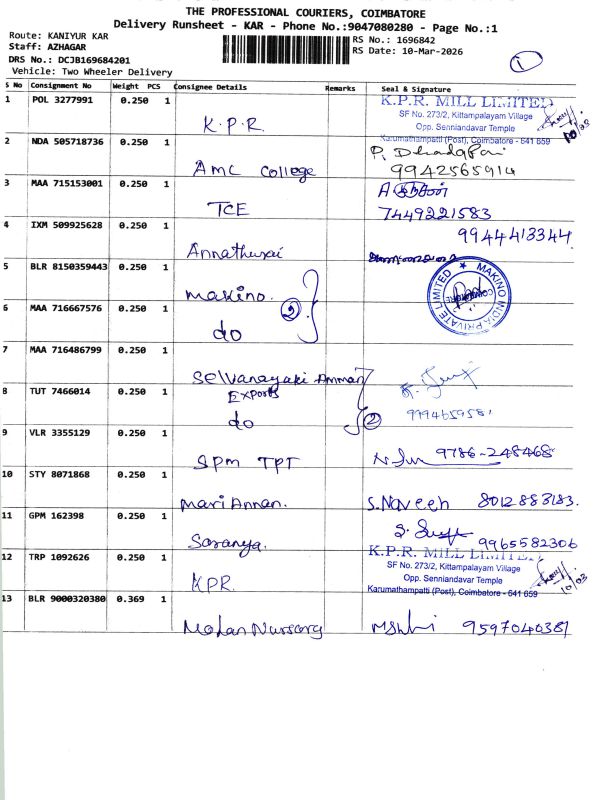 THE PROFESSIONAL COURIERS, COIMBATORE
Delivery Runsheet - KAR - Phone No.:9047080280 - Page No.:1
Route: KANIYUR KAR
RS No.: 1696842
Staff: AZHAGAR
RS Date: 10-Mar-2026
DRS No.: DCJB169684201
Vehicle: Two Wheeler Delivery
1
S No Consignment No Weight PCS Consignee Details Remarks Seal & Signature
1 POL 3277991 0.250 1 K.P.R.
K.P.R. MILL LIMITED
SF No. 273/2, Kittampalayam Village
Opp. Senniandavar Temple
Karumathampatti (Post), Coimbatore - 641 659
2 NDA 505718736 0.250 1 AMC College
9942565914
3 MAA 715153001 0.250 1 TCE
7449221583
4 IXM 509925628 0.250 1 Annathurai
9944413344
5 BLR 8150359443 0.250 1 makino. 2
MAKINO INDIA PRIVATE LIMITED
COIMBATORE
6 MAA 716667576 0.250 1 do
7 MAA 716486799 0.250 1 Selvanayaki Amman
Exports
8 TUT 7466014 0.250 1 do 2
9 VLR 3355129 0.250 1 SPM TPT
9786-248468
10 STY 8071868 0.250 1 Mari Annan.
S.Naveen 8012883183.
11 GPM 162398 0.250 1 Saranya.
9965582306
12 TRP 1092626 0.250 1 KPR.
K.P.R. MILL LIMITED
SF No. 273/2, Kittampalayam Village
Opp. Senniandavar Temple
Karumathampatti (Post), Coimbatore - 641 659
10/03
13 BLR 9000320380 0.369 1 Mohan Nursery
9597040387